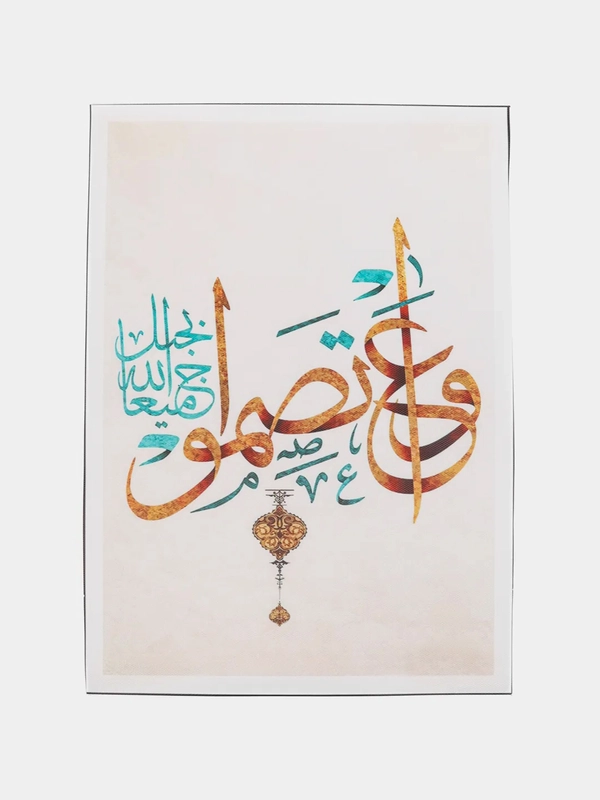 واعتصموا
بحبل
الله جميعا